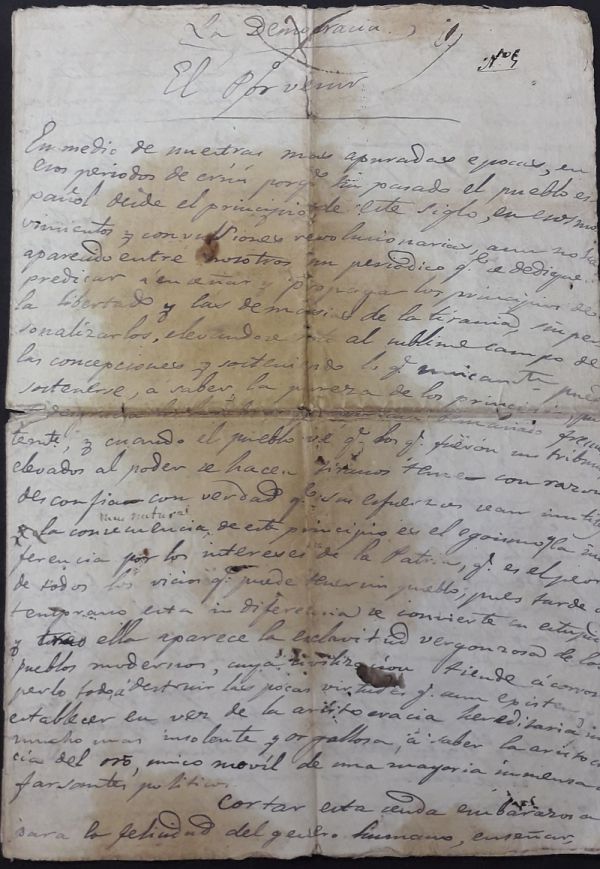 La Democracia.
El Porvenir
En medio de nuestras mas apuradas epocas, en
esos periodos de crisis porqe ha pasado el pueblo es-
pañol desde el principio de este siglo, en esos mo
vimientos y convulsiones revolucionarias, aun no ha
aparecido entre nosotros un periodico qe se dedique
predicar enseñar y propagar los principios de
la libertad y las demasias de la tirania, sin per
sonalizarlos, elevandose al sublime campo de
las concepciones y sosteniendo lo qe unicamte puede
sostenerse, á saber, la pureza de los principios
temte, y cuando el pueblo vé qe los qe fueron un tribuno
elevados al poder se hacen tiranos teme con razon
desconfia con verdad qe sus esfuerzos sean inutiles
mas natural
y La consecuencia de este principio es el egoismo y la in
ferencia por los intereses de la Patria, qe es el peor
de todos los vicios qe puede tener un pueblo, pues tarde o
temprano esta indiferencia se convierte en estupidez
y ella aparece la esclavitud vergonzosa de los
pueblos modernos, cuya civilizacion tiende á corrom
perlo todo, á destruir las pocas virtudes qe aun existen
establecer en vez de la aristocracia hereditaria
mucho mas insolente y orgullosa, á saber la aristocra
cia del oro, unico movil de una mayoria inmensa
farsantes politicos.
Cortar esta senda embarazosa
para la felicidad del genero humano, enseñar,